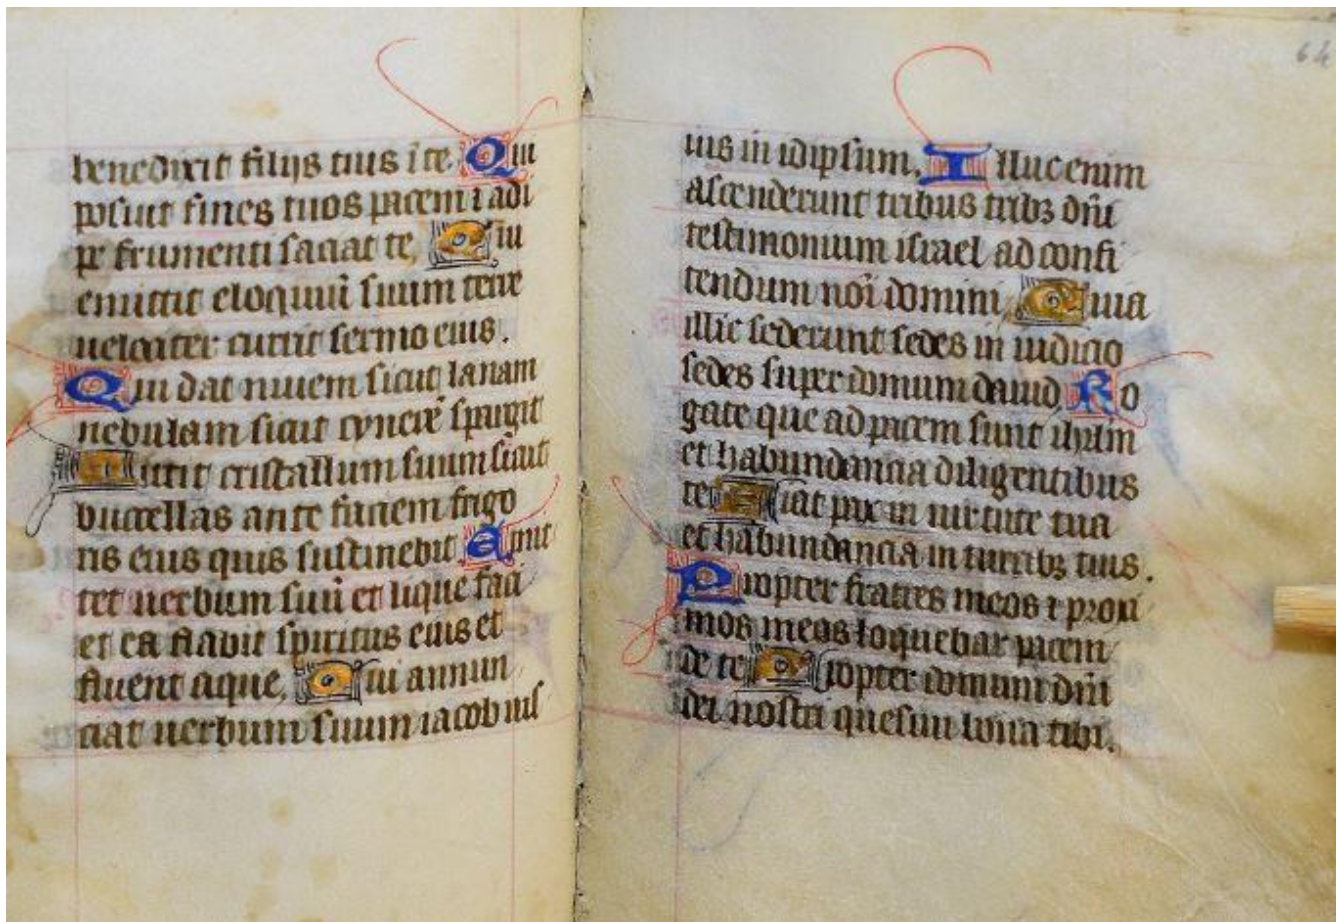 benedixit filijs tuis ī te Qui
posuit fines tuos pacem ⁊ adi
pe frumenti saciat te. Qui
emittit eloquiū suum terre
uelociter currit sermo eius.
Qui dat niuem sicut lanam
nebulam sicut cynerē spargit
Mittit cristallum suum sicut
buccellas ante faciem frigo
ris eius quis sustinebit Emit
tet uerbum suū et lique faci
et ea flabit spiritus eius et
fluent aque. Qui annun
ciat uerbum suum iacob ius
64
ius in idipsum. Illuc enim
ascenderunt tribus tribꝫ dn̄i
testimonium israel ad confi
tendum noī domini Quia
illic sederunt sedes in iudicio
sedes super domum dauid Ro
gate que ad pacem sunt ihrlm
et habundancia diligentibus
te Fiat pax in uirtute tua
et habundancia in turribꝫ tuis.
Propter fratres meos ⁊ proxi
mos meos loquebar pacem
de te Propter domum dn̄i
dei nostri quesiui bona tibi.